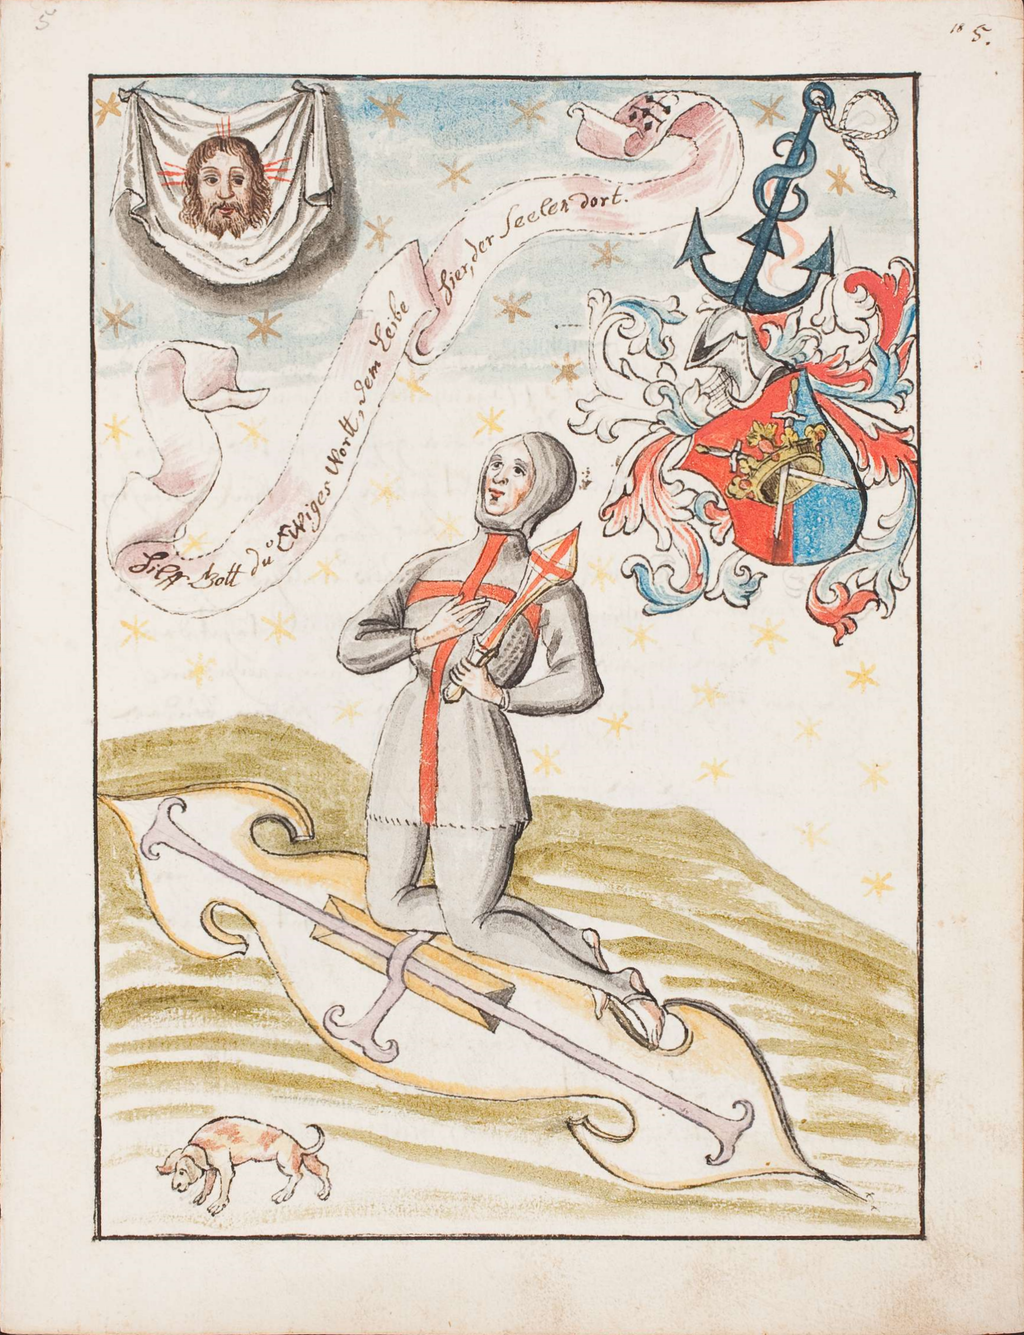 5
18 5.
Hilff Gott dü Ewiges Wortt, dem Leibe
hier, der Seelen dort.